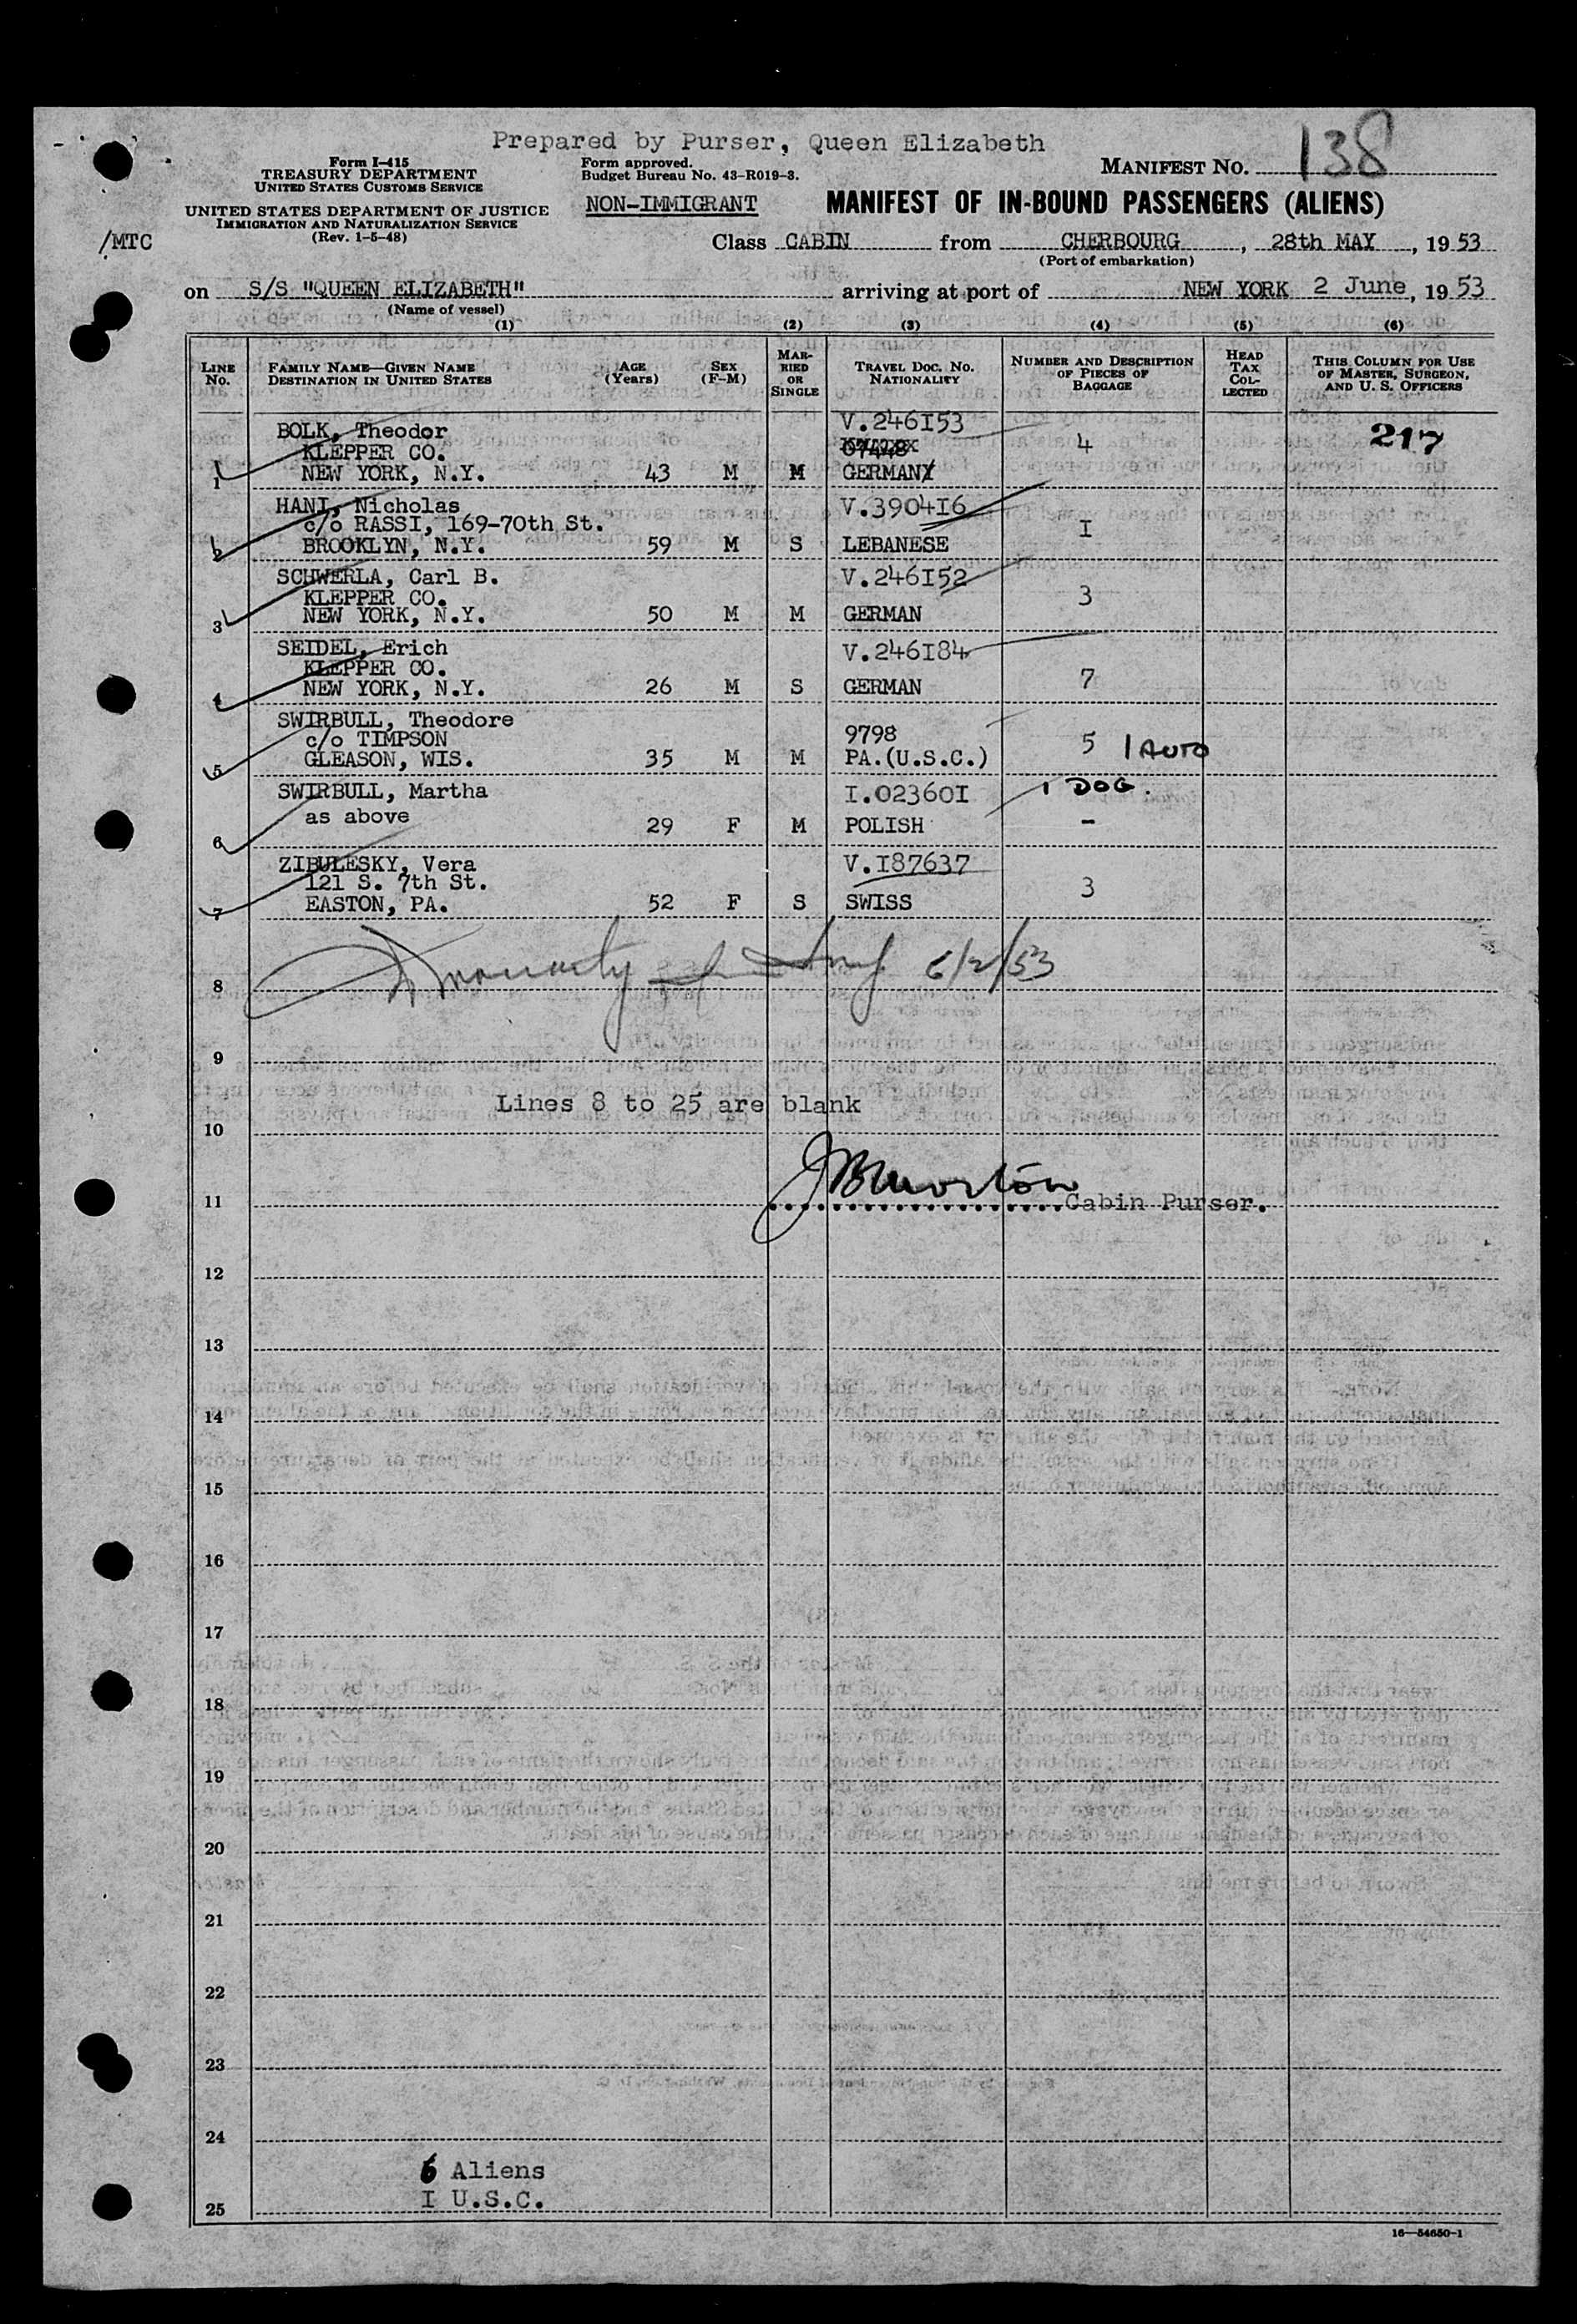 Prepared by Purser, Queen Elizabeth
Form I-415
TREASURY DEPARTMENT
UNITED STATES CUSTOMS SERVICE
UNITED STATES DEPARTMENT OF JUSTICE
IMMIGRATION AND NATURALIZATION SERVICE
(Rev. 1-5-48)
/MTC
Form approved.
Budget Bureau No. 43-R019-3.
NON-IMMIGRANT
MANIFEST NO. 138
MANIFEST OF IN-BOUND PASSENGERS (ALIENS)
Class CABIN from CHERBOURG, 28th MAY, 1953
(Port of embarkation)
on S/S "QUEEN ELIZABETH" arriving at port of NEW YORK 2 June, 1953
(Name of vessel)
(1) (2) (3) (4) (5) (6)
LINE No. FAMILY NAME—GIVEN NAME DESTINATION IN UNITED STATES AGE (Years) SEX (F-M) MARRIED OR SINGLE TRAVEL DOC. NO. NATIONALITY NUMBER AND DESCRIPTION OF PIECES OF BAGGAGE HEAD TAX COLLECTED THIS COLUMN FOR USE OF MASTER, SURGEON, AND U. S. OFFICERS
BOLK, Theodor V.246I53 217
KLEPPER CO. 07448 4
1 NEW YORK, N.Y. 43 M M GERMANY
HANI, Nicholas V.390416
c/o RASSI, 169-70th St. I
2 BROOKLYN, N.Y. 59 M S LEBANESE
SCHWERLA, Carl B. V.246I52
KLEPPER CO. 3
3 NEW YORK, N.Y. 50 M M GERMAN
SEIDEL, Erich V.246I84
KLEPPER CO. 7
4 NEW YORK, N.Y. 26 M S GERMAN
SWIRBULL, Theodore 9798
c/o TIMPSON 5 1 AUTO
5 GLEASON, WIS. 35 M M PA.(U.S.C.)
SWIRBULL, Martha I.02360I 1 DOG.
as above
6 29 F M POLISH -
ZIBULESKY, Vera V.I87637
121 S. 7th St. 3
7 EASTON, PA. 52 F S SWISS
6/2/53
8
9
Lines 8 to 25 are blank
10
JBMorton
11 Cabin Purser.
12
13
14
15
16
17
18
19
20
21
22
23
24
6 Aliens
I U.S.C.
25
16—54650-1